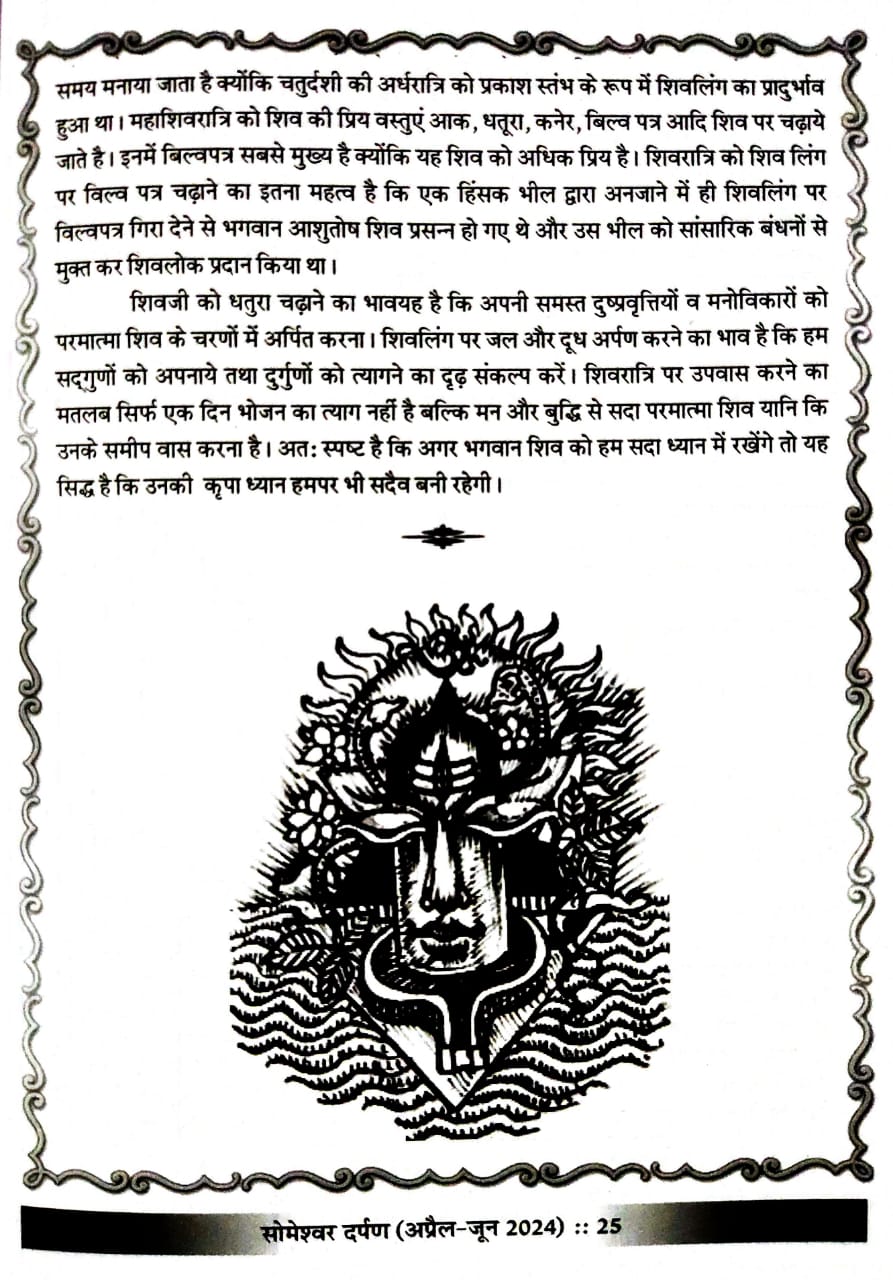 समय मनाया जाता है क्योंकि चतुर्दशी की अर्धरात्रि को प्रकाश स्तंभ के रूप में शिवलिंग का प्रादुर्भाव
हुआ था। महाशिवरात्रि को शिव की प्रिय वस्तुएं आक, धतूरा, कनेर, बिल्व पत्र आदि शिव पर चढ़ाये
जाते है। इनमें बिल्वपत्र सबसे मुख्य है क्योंकि यह शिव को अधिक प्रिय है। शिवरात्रि को शिव लिंग
पर विल्व पत्र चढ़ाने का इतना महत्व है कि एक हिंसक भील द्वारा अनजाने में ही शिवलिंग पर
विल्वपत्र गिरा देने से भगवान आशुतोष शिव प्रसन्न हो गए थे और उस भील को सांसारिक बंधनों से
मुक्त कर शिवलोक प्रदान किया था।
शिवजी को धतुरा चढ़ाने का भावयह है कि अपनी समस्त दुष्प्रवृत्तियों व मनोविकारों को
परमात्मा शिव के चरणों में अर्पित करना। शिवलिंग पर जल और दूध अर्पण करने का भाव है कि हम
सद्‌गुणों को अपनाये तथा दुर्गुणों को त्यागने का दृढ़ संकल्प करें। शिवरात्रि पर उपवास करने का
मतलब सिर्फ एक दिन भोजन का त्याग नहीं है बल्कि मन और बुद्धि से सदा परमात्मा शिव यानि कि
उनके समीप वास करना है। अतः स्पष्ट है कि अगर भगवान शिव को हम सदा ध्यान में रखेंगे तो यह
सिद्ध है कि उनकी कृपा ध्यान हमपर भी सदैव बनी रहेगी।
सोमेश्वर दर्पण (अप्रैल-जून 2024) :: 25